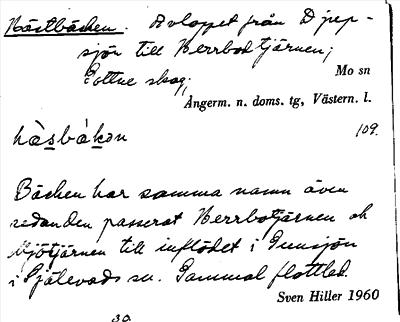 Hästbäcken. Avloppet från Djup-
sjön till Herrbodtjärnen;
Gottne skog;
Mo sn
Ångerm. n. doms. tg, Västern. l.
hàsbàkən 109.
Bäcken har samma namn även
sedan den passerat Herrbotjärnen och
Mjötjärnen till inflödet i
i Själevads sn. Gammal flottled.
Sven Hiller 1960
30